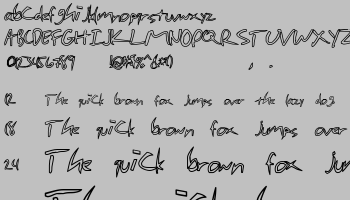 abcdefghijklmnopqrstuvwxyz
ABCDEFGHIJKLMNOPQRSTUVWXYZ
0123456789 !@#$%^&*() , .
12 The quick brown fox jumps over the lazy dog
18 The quick brown fox jumps over
24 The quick brown fox ju